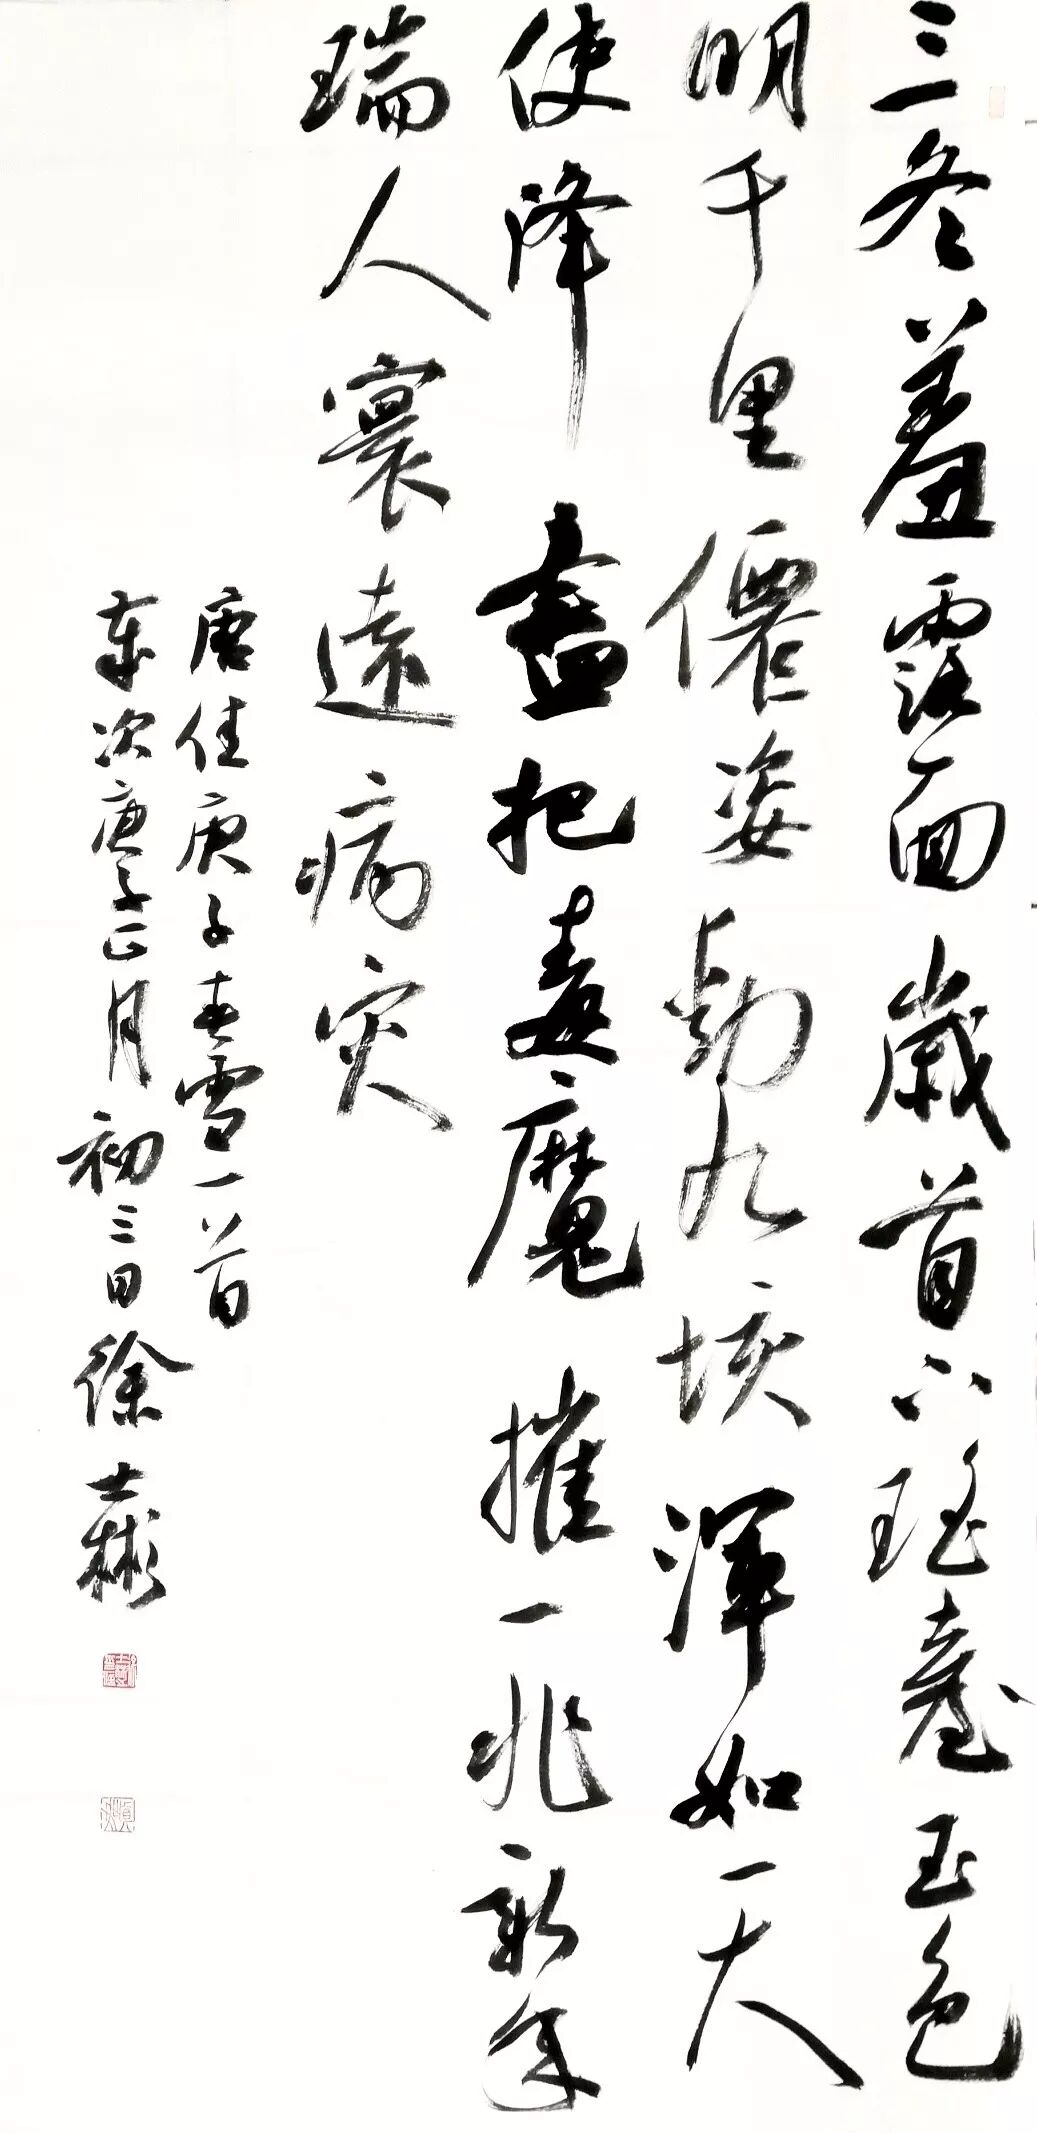 三冬羞露面歲首下瑤臺玉色
明千里僊姿動九垓渾如天
使降盡把毒魔摧一兆新年
瑞人寰遠病灾
唐佳庚子春雪一首
歲次庚子正月初三日徐世彬